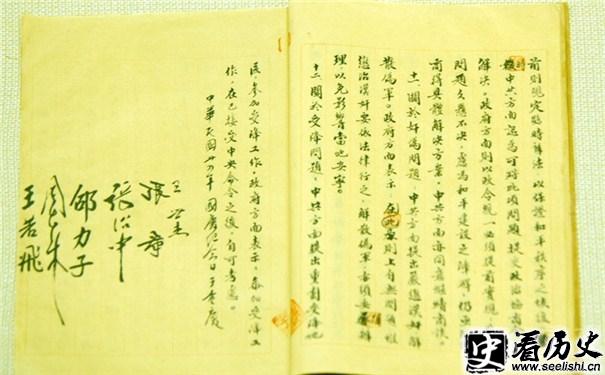 前則規定臨時辦法,以保證和平秩序之恢復
中共方面認為可將此項問題提交政治協商
解決。政府方面則以政令統一必須提前實現
問題久懸不決,慮為和平建設之障礙,仍亟
商得具體解決方案。中共方面亦同意繼續商談。
十一關於奸偽問題,中共方面提出嚴懲漢奸解
散偽軍。政府方面表示,在原則上自無問題,惟
懲治漢奸要依法律行之,解散偽軍亦須妥慎辦
理,以免影響當地安寧。
十二關於受降問題,中共方面提出重劃受降地
區,參加受降工作。政府方面表示,參加受降工
作,在已接受中央命令之後,自可考慮。
中華民國卅四年國慶紀念日于重慶
王世杰
張羣
張治中
邵力子
周恩來
王若飛
史
看历史
www.seelishi.cn